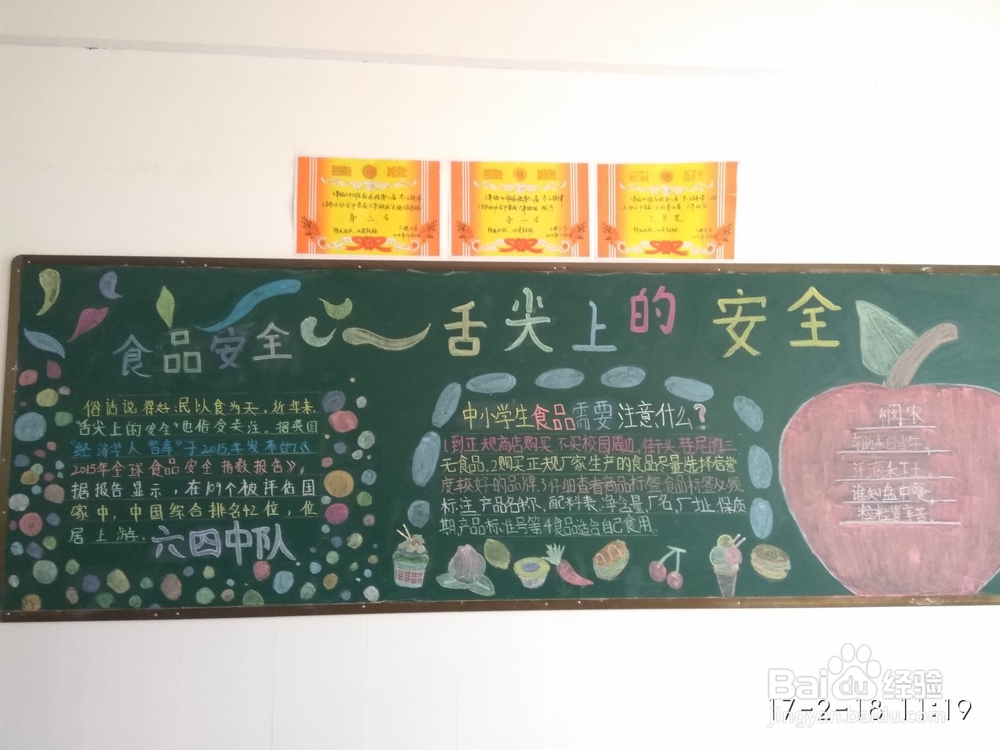 奖状
奖状
奖状
第二名
第一名
食品安全
舌尖上的安全
俗话说得好,民以食为天,近年来,
"舌尖上的安全"也倍受关注。据英国
"经济学人智库"于2015年发布的《
2015年全球食品安全指数报告》,
据报告显示,在109个被评估国
家中,中国综合排名42位,位
居上游。
六四中队
中小学生食品需要注意什么?
1到正规商店购买,不买校园周边,街头巷尾的三
无食品,2购买正规厂家生产的食品尽量选择信誉
度较好的品牌,3仔细查看商品标签食品标签必须
标注产品名称、配料表、净含量,厂名,厂址,保质
期产品标准号等,4食品适合自己食用
悯农
锄禾日当午,
汗滴禾下土
谁知盘中餐
粒粒皆辛苦
Baidu经验
jingyan.baidu.com
17-2-18 11:19